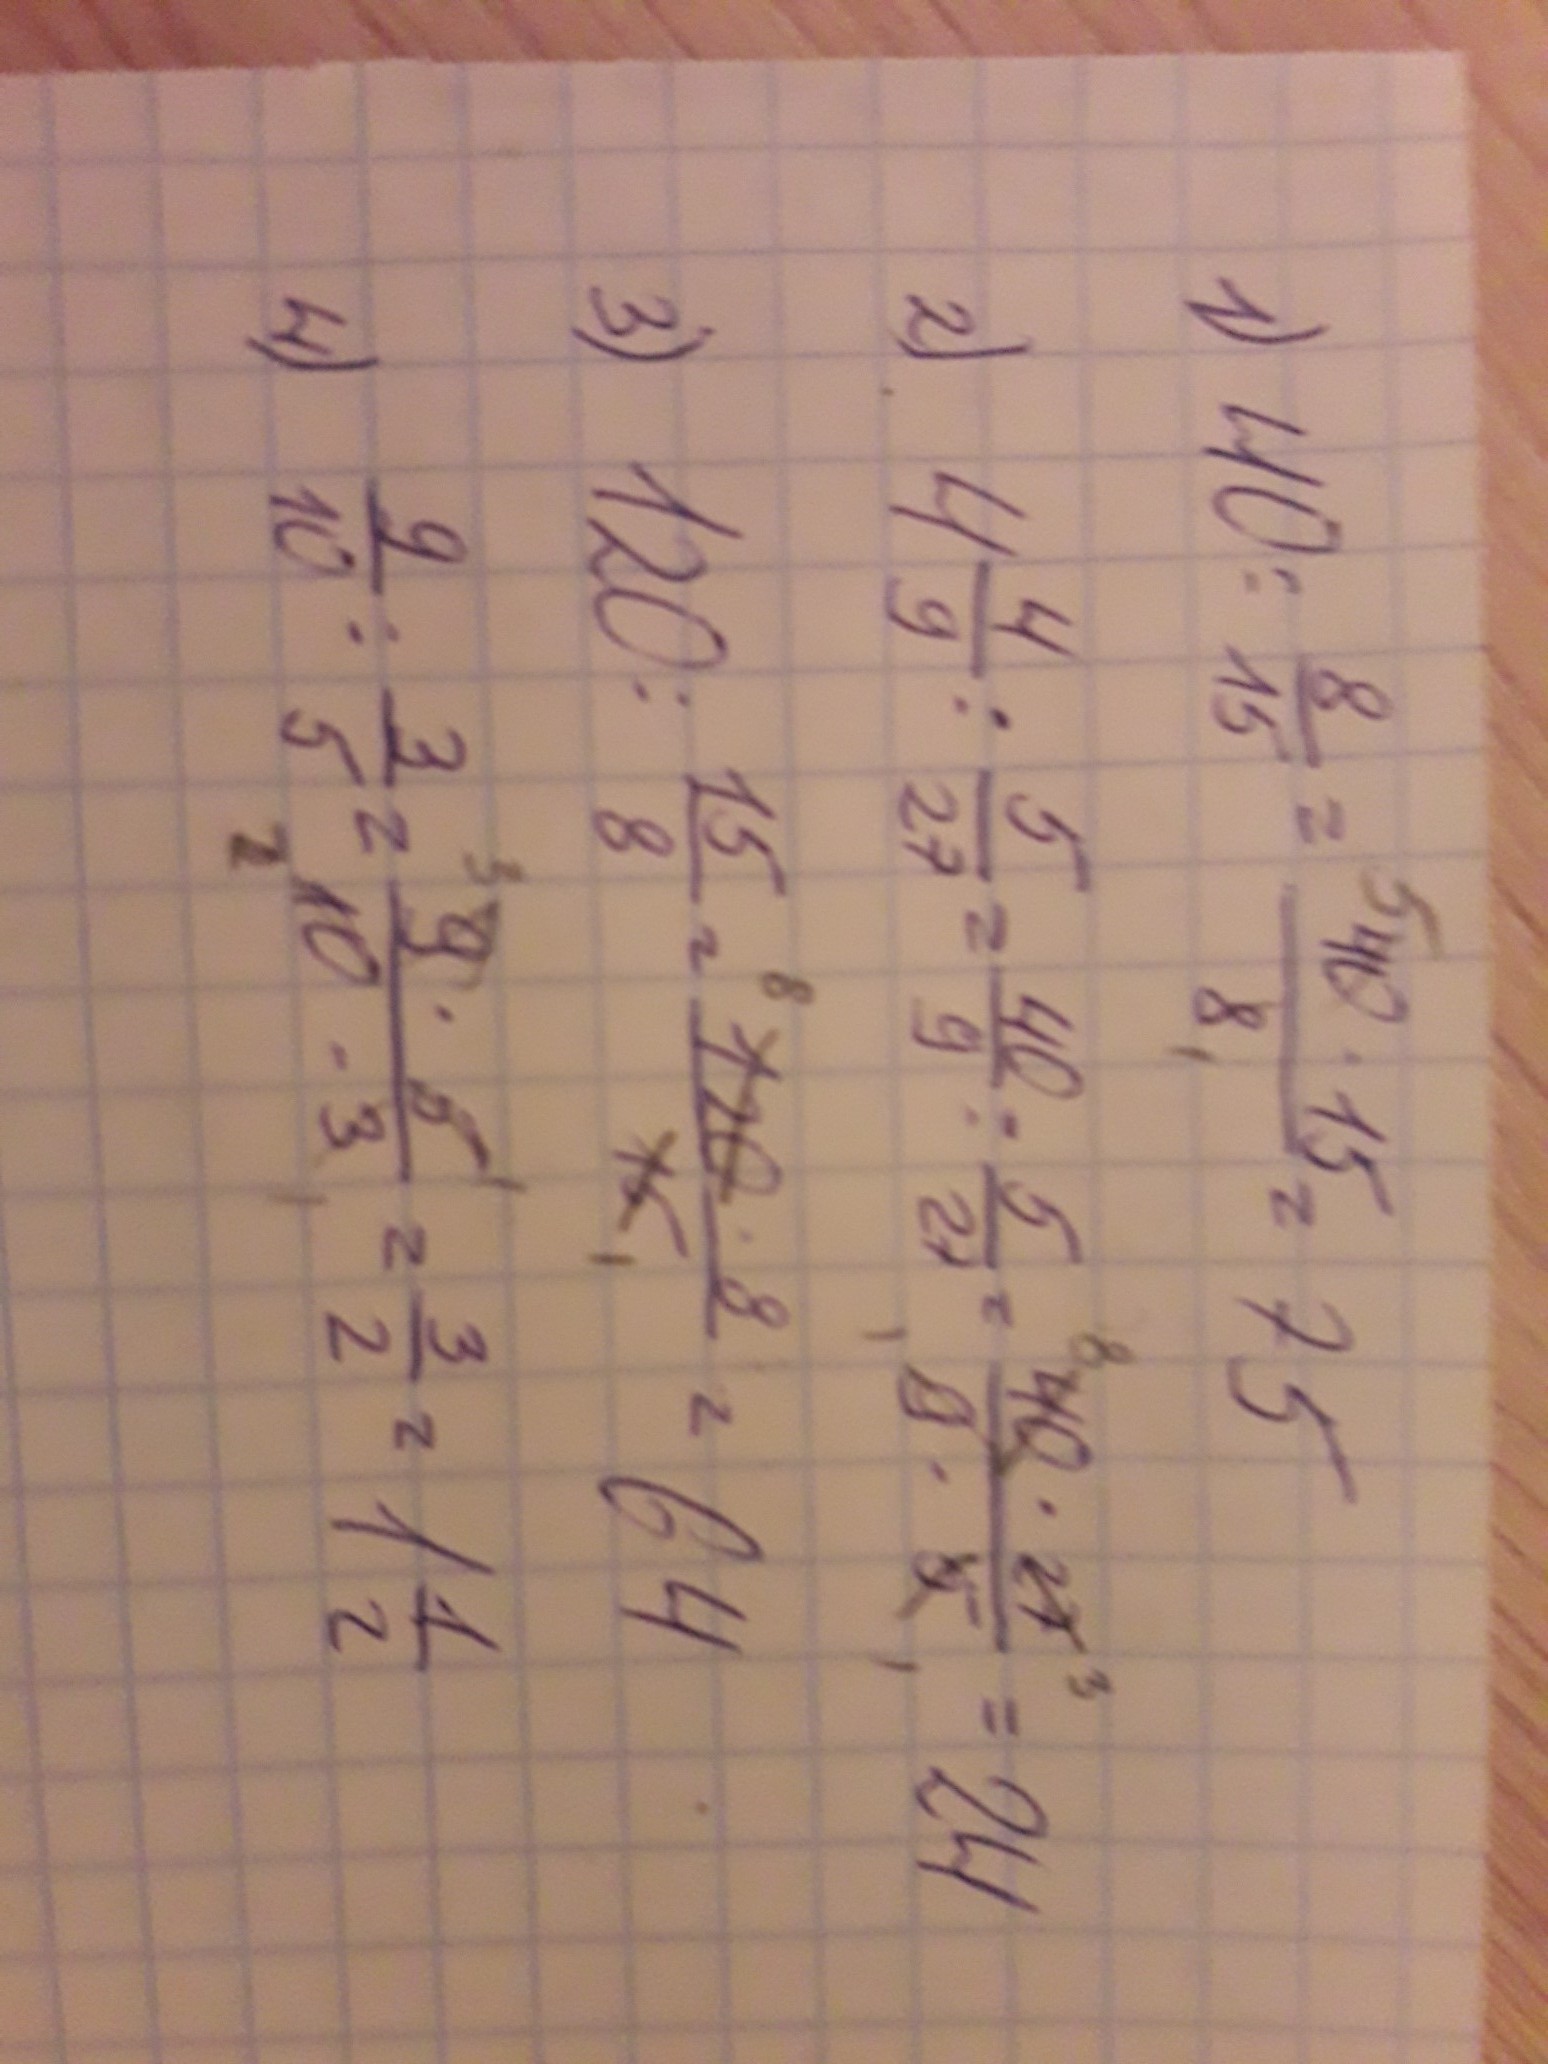 1) 40 : 8/15 = ⁵40 · 15 / 8₁ = 75
2) 4 4/9 : 5/27 = 40/9 : 5/27 = ⁸40 · 27³ / ₁9 · 5₁ = 24
3) 120 : 15/8 = ⁸120 · 8 / 15₁ = 64
4) 9/10 : 3/5 = ³9 · 5¹ / ₂10 · 3₁ = 3/2 = 1 1/2